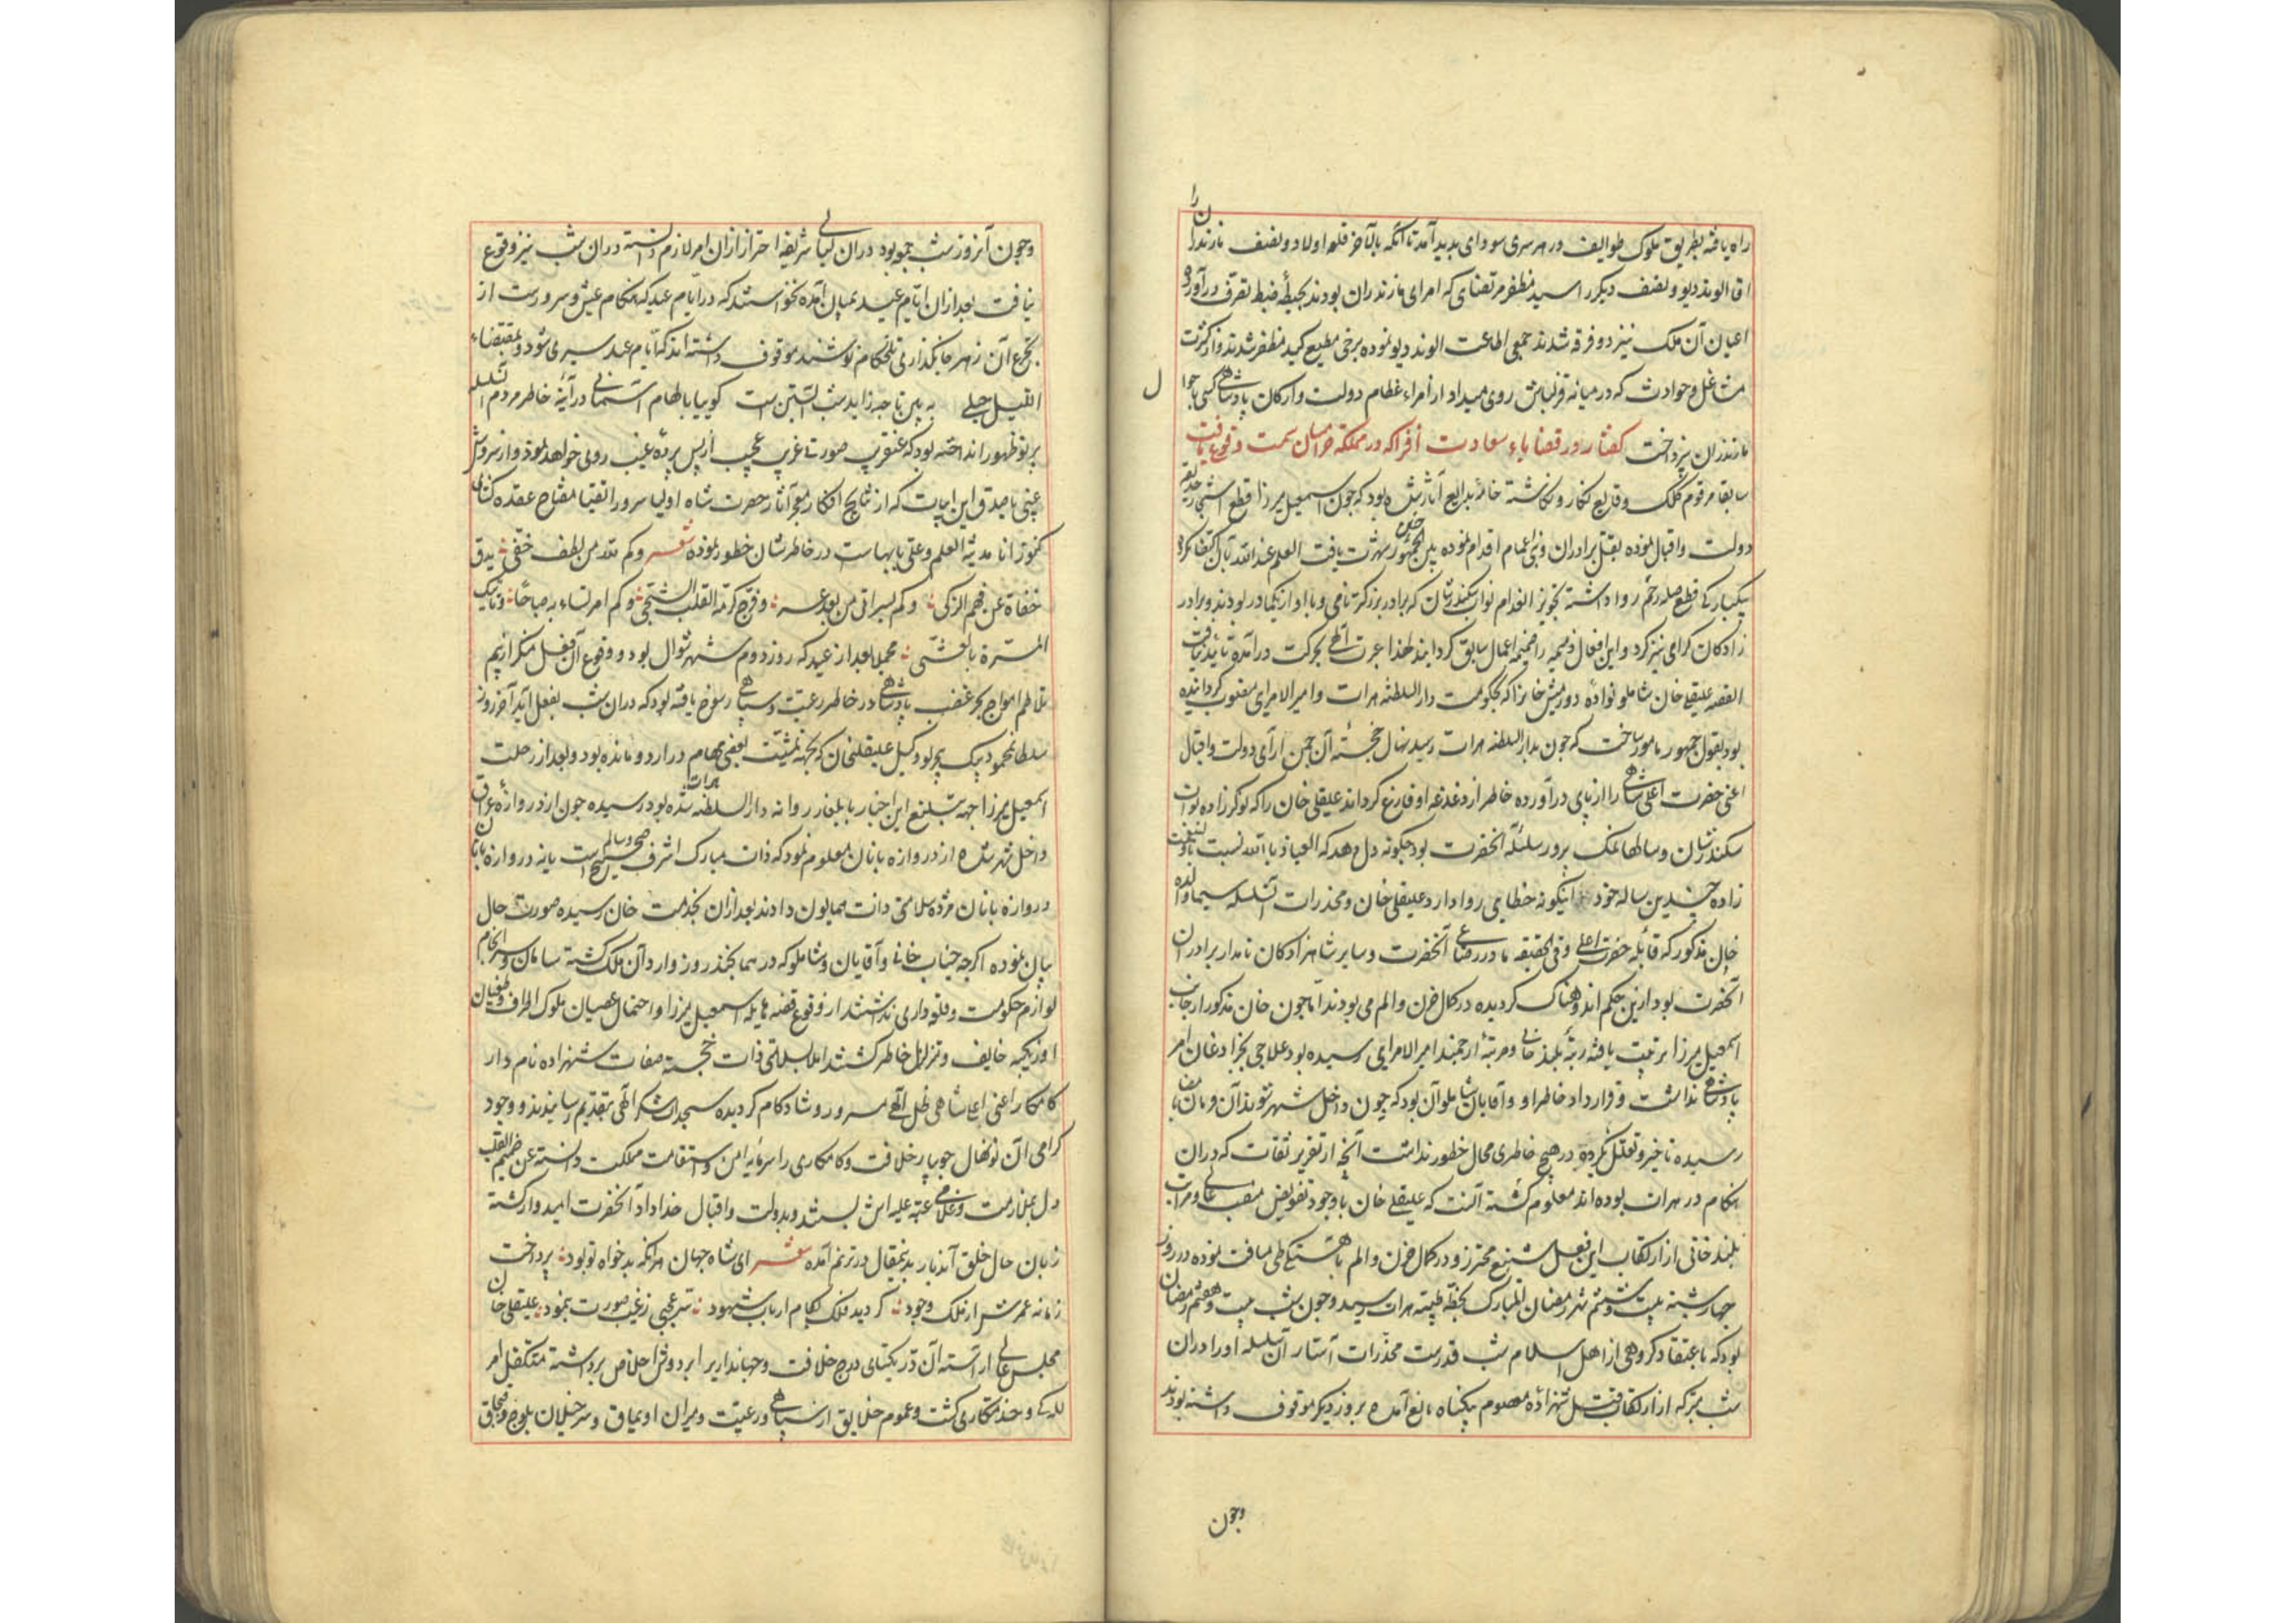 راه یافته بطریق ملوک طوایف در هر سری سودای پدید آمد تا آنکه بالآخر قلعه اولاد و نصف مازندران را
آقا الوند دیو و نصف دیگر را سید مظفر مرتضای که امرای مازندران بودند بحیطهٔ ضبط تصرف درآورد و
اعیان آن ملک نیز دو فرقه شدند جمعی اطاعت الوند دیو نموده برخی مطیع سید مظفر شدند و از کثرت
مشاغل و حوادث که در میانه قزلباش روی میداد از امراء عظام دولت و ارکان پادشاهی کسی با حوال
مازندران نپرداخت گفتار در قضایاء سعادت افزا که در مملکت خراسان سمت وقوع یافت
سابقا مرقوم کلک وقایع نگار و نگاشته خامهٔ بدایع آثار شده بود که چون اسمعیل میرزا قطع اشجار حدیقه
دولت و اقبال نموده بقتل برادران و بنی اعمام اقدام نموده بین الجمهور شهرت یافت العلم عند الله بآن اکتفا نکرد
بیکبارگی قطع صله رحم روا داشته تجویز انعدام نواب سکندرشان که برادر بزرگتر نامی و با او از یکمادر بودند و برادر
زادگان گرامی نیز کرد و این افعال ذمیمه را ضمیمه اعمال سابق گردانید لهذا غیرت الهی بحرکت درآمده تائید نیافت
القصه علیقلی خان شاملو نواده دورمیش خانرا که بحکومت دارالسلطنه هرات و امیر الامرایی منصوب گردانیده
بود بقول جمهور مامور ساخت که چون بدارالسلطنه هرات رسد نهال خجستهٔ آن چمن آرای دولت و اقبال
اعنی حضرت اعلی شاهی را از پای درآورده خاطر از دغدغه او فارغ گرداند علیقلی خان را که نوکر زاده نواب
سکندرشان و سالها نمک پرور سلسلهٔ آنحضرت بود چگونه دل دهد که العیاذ بالله نسبت بولینعمت
زاده چندین ساله خود اینگونه خطایی روا دارد علیقلی خان و مخدرات آن سلسله سیما والده
خان مذکور که قابله حضرت اعلی و فی الحقیقه مادر رضاعی آنحضرت و سایر شاهزادگان نامدار برادران
آنحضرت بود ازین حکم اندوهناک گردیده در کمال حزن و الم می بودند اما چون خان مذکور از جانب
اسمعیل میرزا تربیت یافته رتبهٔ بلند خانی و مرتبهٔ ارجمند امیر الامرایی رسیده بود علاجی بجز اذعان امر
پادشاهی نداشت و قرارداد خاطر او و آقایان شاملو آن بود که چون داخل شهر شوند آن فرمان بامضا
رسیده تاخیر و تعلل نکرده در هیچ خاطری محال خطور نداشت آنچه از تقریر ثقات که در ان
هنکام در هرات بوده اند معلوم گشته آنست که علیقلی خان با وجود تفویض منصب عالی و مراتب
بلند خانی از ارتکاب این فعل شنیع محترز و در کمال حزن و الم باهستگی طی مسافت نموده در روز
چهارشنبه بیست و ششم شهر رمضان المبارک بخطه طیبه هرات رسید و چون شب بیست و هفتم رمضان
بود که باعتقاد گروهی از اهل اسلام شب قدرست مخدرات آستار آن سلسله او را در ان
شب متبرکه از ارتکاب قتل شهزادهٔ معصوم بیگناه مانع آمده بروز دیگر موقوف داشته بودند
وچون
و چون آنروز شب جمعه بود در ان لیالی شریفه احتراز از ان امر لازم دانسته در ان شب نیز وقوع
نیافت بعد از ان ایام عید بمیان آمده نخواستند که در ایام عید که هنگام عیش و سرورست از
تجرع آن زهر جانگذار تلخکام نوشند موقوف داشته اند که ایام عید سپری شود و بمقتضاء
اللیل حبلی به بین تا چه زاید شب آبستن است گوییا بالهام آسمانی در آینهٔ خاطر مردم آن سلسله
پرتو ظهور انداخته بود که عنقریب صورتی غریب عجیب از پس پردهٔ غیب روی خواهد نمود و از سروش
غیبی ناصدق این ابیات که از نتایج افکار معجز آثار حضرت شاه اولیا سرور اتقیا مفتاح عقده گشای
کنوز انا مدینة العلم و علی بابهاست در خاطرشان خطور نموده شعر و کم لله من لطف خفی یدق
خفاه عن فهم الزکی و کم یسر اتی من بعد عسر و فرج کربه القلب الشجی و کم امر تساء به صباحا و تاتیک
المسرة بالعشی مجملا بعد از عید که روز دوم شهر شوال بود و وقوع آن فعل منکر از بیم
تلاطم امواج بحر غضب پادشاهی در خاطر رعیت و سپاهی رسوخ یافته بود که در ان شب بفعل آید آخر روز
سلطان محمود بیک پیر بود وکیل علیقلیخان که بجهة تمشیت بعضی مهام در اردو مانده بود و بعد از رحلت
اسمعیل میرزا جهة تبلیغ این اخبار بایلغار روانه دارالسلطنه هرات شده بود رسیده چون از دروازهٔ عراق
داخل شهر شده از دروازه بانان معلوم نمود که ذات مبارک اشرف صحیح و سالم است یا نه دروازه بانان
دروازه بانان مژده سلامتی ذات همایون دادند بعد از ان بخدمت خان رسیده صورت حال
بیان نموده اگرچه جناب خانی و آقایان و شاملو که در همان چند روز وارد آن ملک گشته سامان و سرانجام
لوازم حکومت و قلعه داری نداشتند از وقوع قضیه هایله اسمعیل میرزا و احتمال عصیان ملوک اطراف و طغیان
اوزبکیه خایف و متزلزل خاطر گشتند اما بسلامتی ذات خجسته صفات شهزاده نامدار
کامکار اعنی اعلی شاهی ظل الهی مسرور و شادکام گردیده سجدات شکر الهی بتقدیم رسانیدند و وجود
گرامی آن نونهال جویبار خلافت و کامکاری را سرمایه امن و استقامت مملکت دانسته عن صمیم القلب
دل بملازمت و غلامی عتبه علیه اش بستند و بدولت و اقبال خداداد آنحضرت امیدوار گشته
زبان حال خلق آندیار بدینمقال در ترنم آمده شعر ای شاه جهان هر آنکه بدخواه تو بود پرداخت
زمانه عمرش از ملک وجود گردید فلک بکام ارباب شهود سر عجبی ز غیب صورت بنمود علیقلی خان
مجلس عالی آراسته آن در یکتای درج خلافت و جهانداریرا بر دوش اخلاص برداشته متکفل امر
للگی و خدمتکاری گشت و عموم خلایق از سپاهی و رعیت و میران اویماق و سرخیلان بلوچ و قبچاق